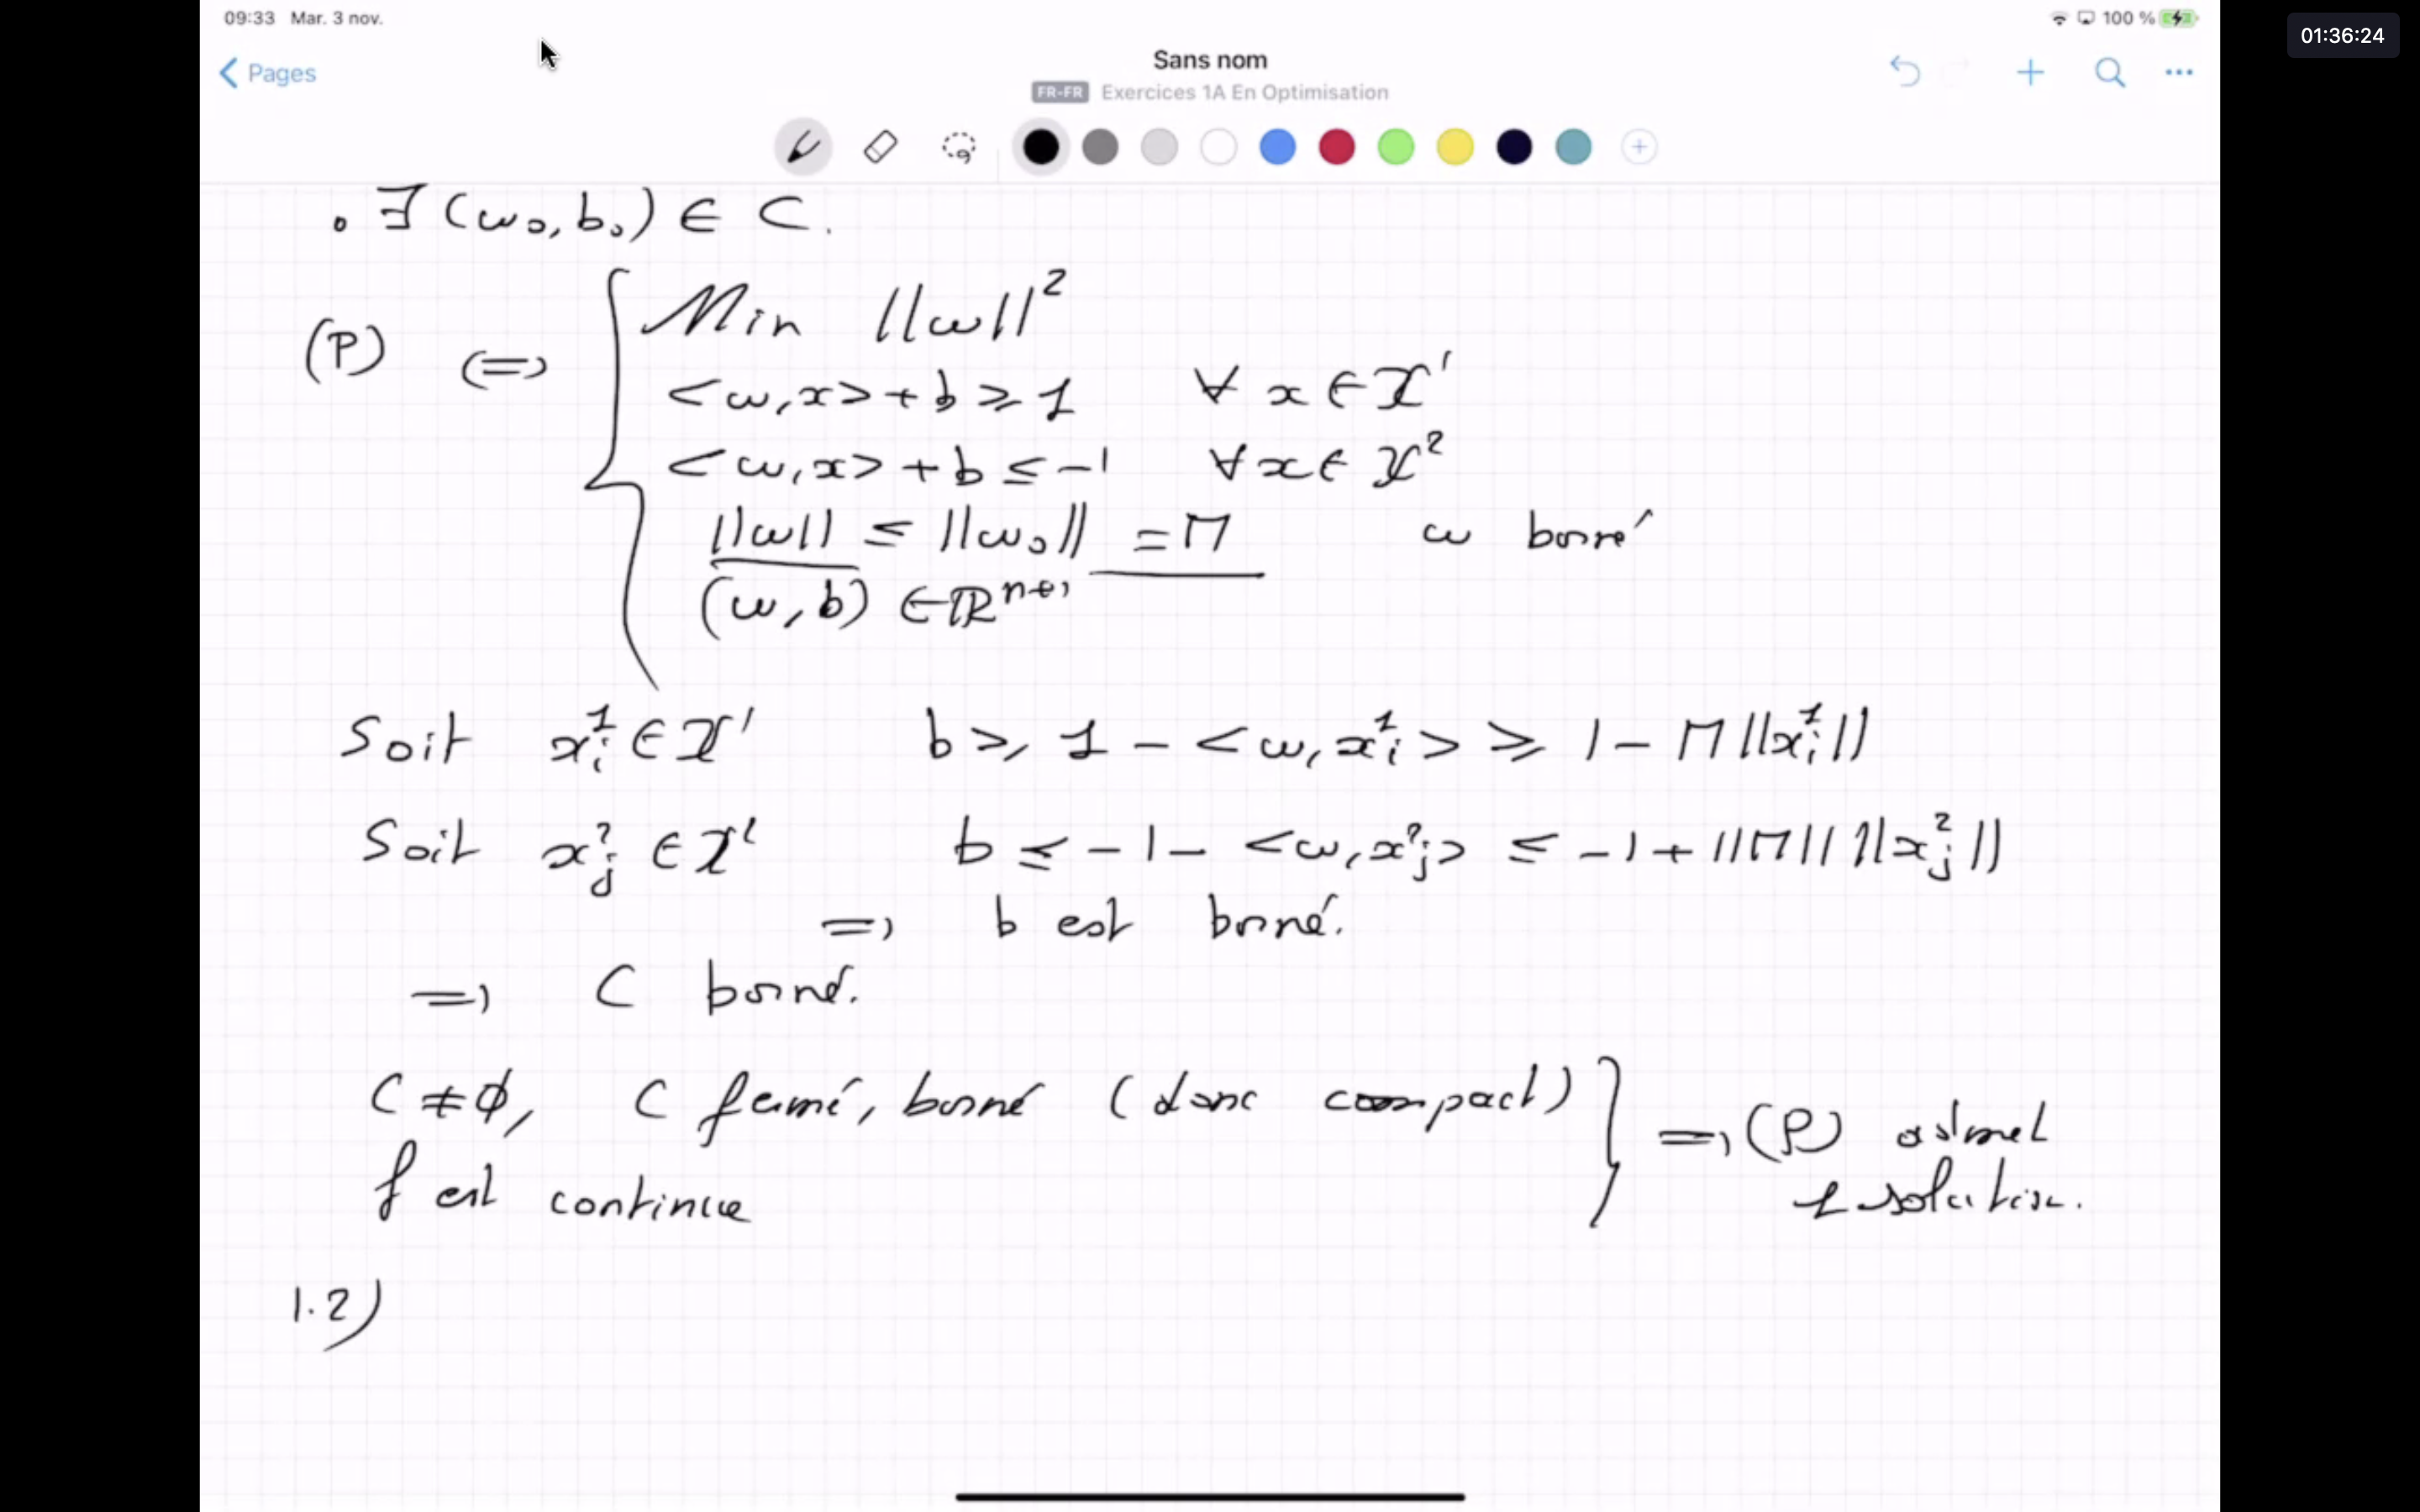 09:33 Mar. 3 nov.
100 %
01:36:24
Pages
Sans nom
FR-FR Exercices 1A En Optimisation
• ∃ (w₀, b₀) ∈ C.
(P) (=) Min ||w||²
<w,x> + b ≥ 1 ∀ x ∈ X¹
<w,x> + b ≤ -1 ∀ x ∈ X²
||w|| ≤ ||w₀|| = M w borné
(w, b) ∈ ℝⁿ⁺¹
Soit xᵢ¹ ∈ X¹ b ≥ 1 - <w, xᵢ¹> ≥ 1 - M ||xᵢ¹||
Soit xⱼ² ∈ X² b ≤ -1 - <w, xⱼ²> ≤ -1 + ||M|| ||xⱼ²||
=) b est borné.
=) C borné.
C ≠ ∅, C fermé, borné (donc compact)
f est continue
=) (P) admet
1 solution.
1.2)